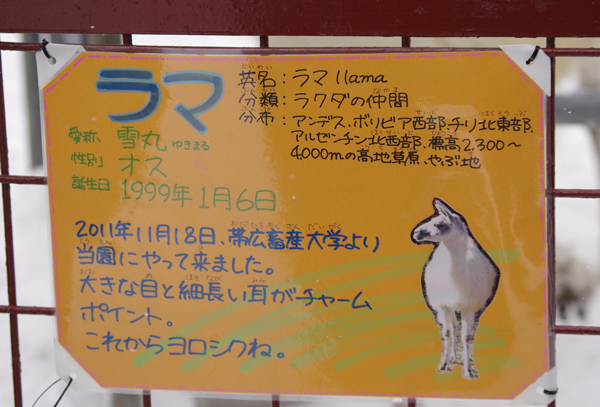 ラマ
英名：ラマ llama
分類：ラクダの仲間
分布：アンデス、ボリビア西部、チリ北東部、
アルゼンチン北西部、標高2,300～
4,000mの高地草原、やぶ地
愛称 雪丸 ゆきまる
性別 オス
誕生日 1999年1月6日
2011年11月18日、帯広畜産大学より
当園にやって来ました。
大きな目と細長い耳がチャーム
ポイント。
これからヨロシクね。